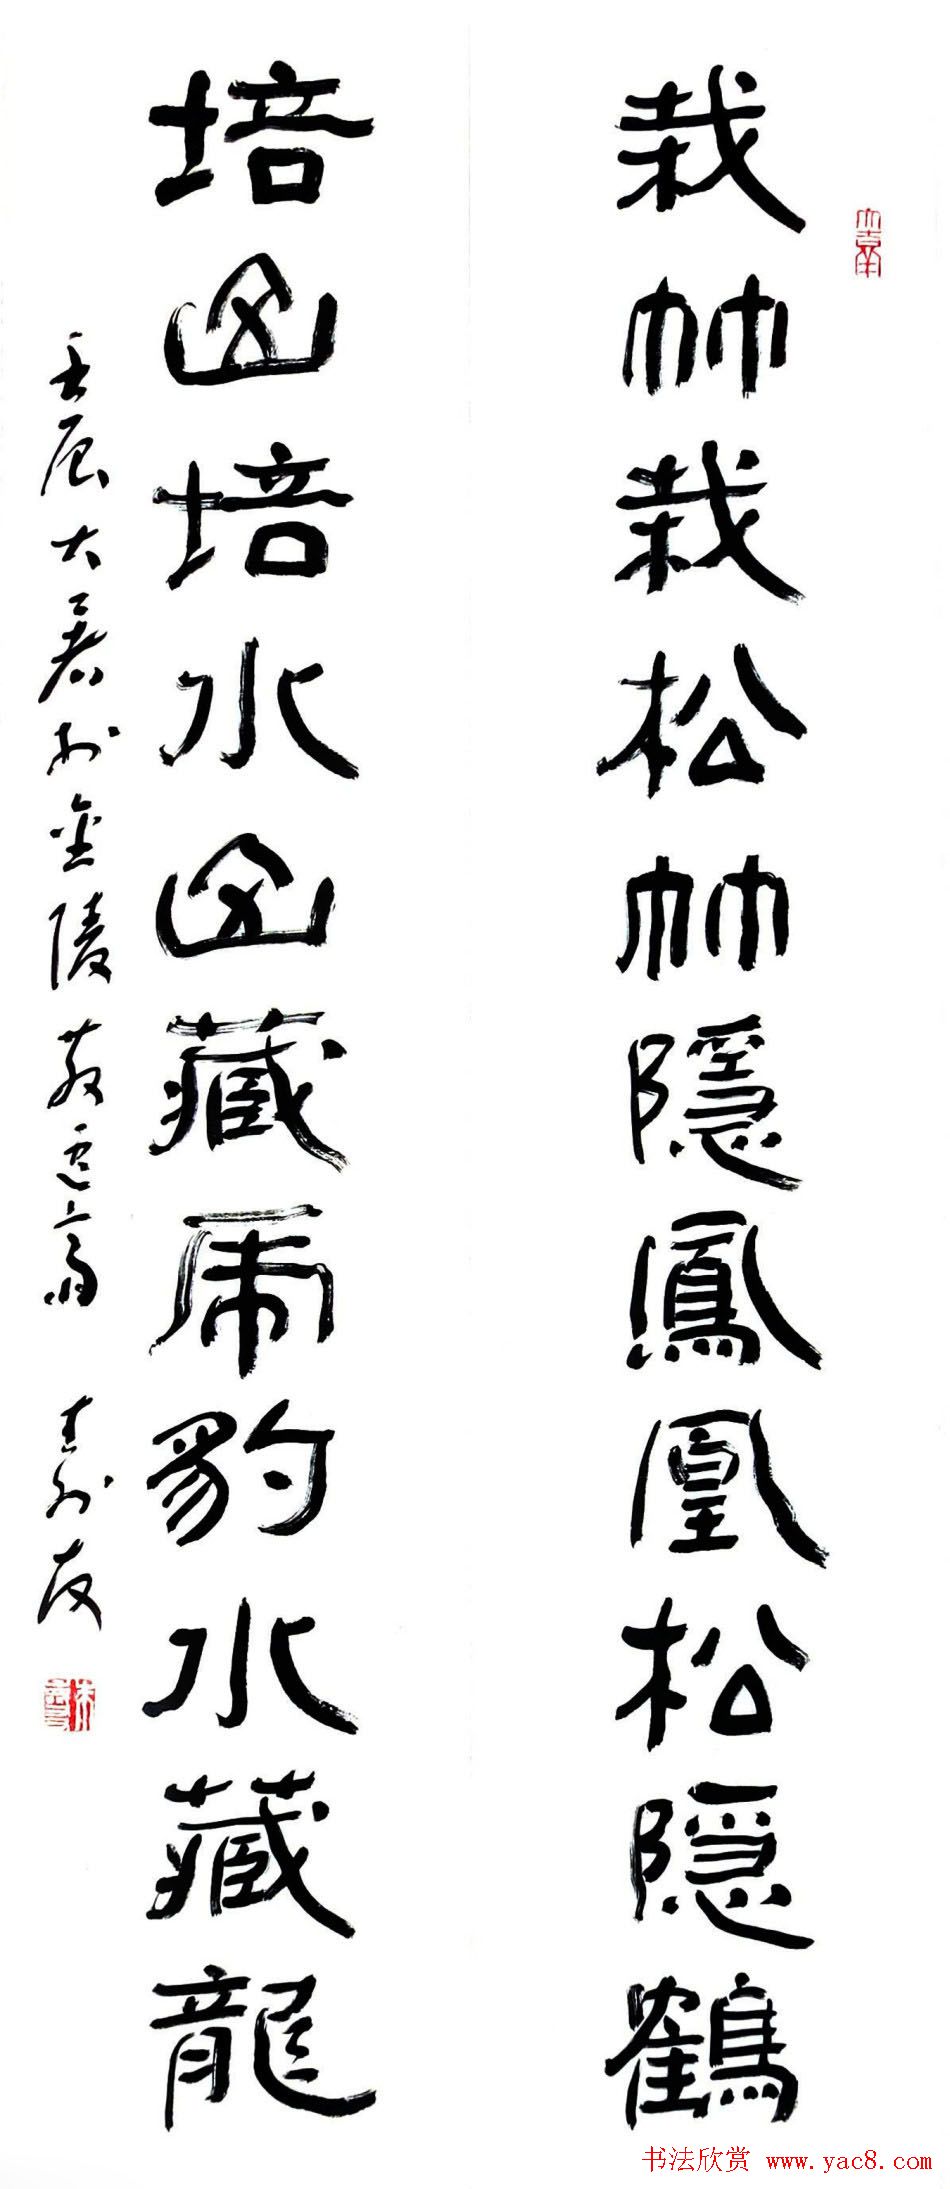 栽竹栽松竹隱鳳凰松隱鶴
培山培水山藏虎豹水藏龍
壬辰大暑於金陵
书法欣赏 www.yac8.com